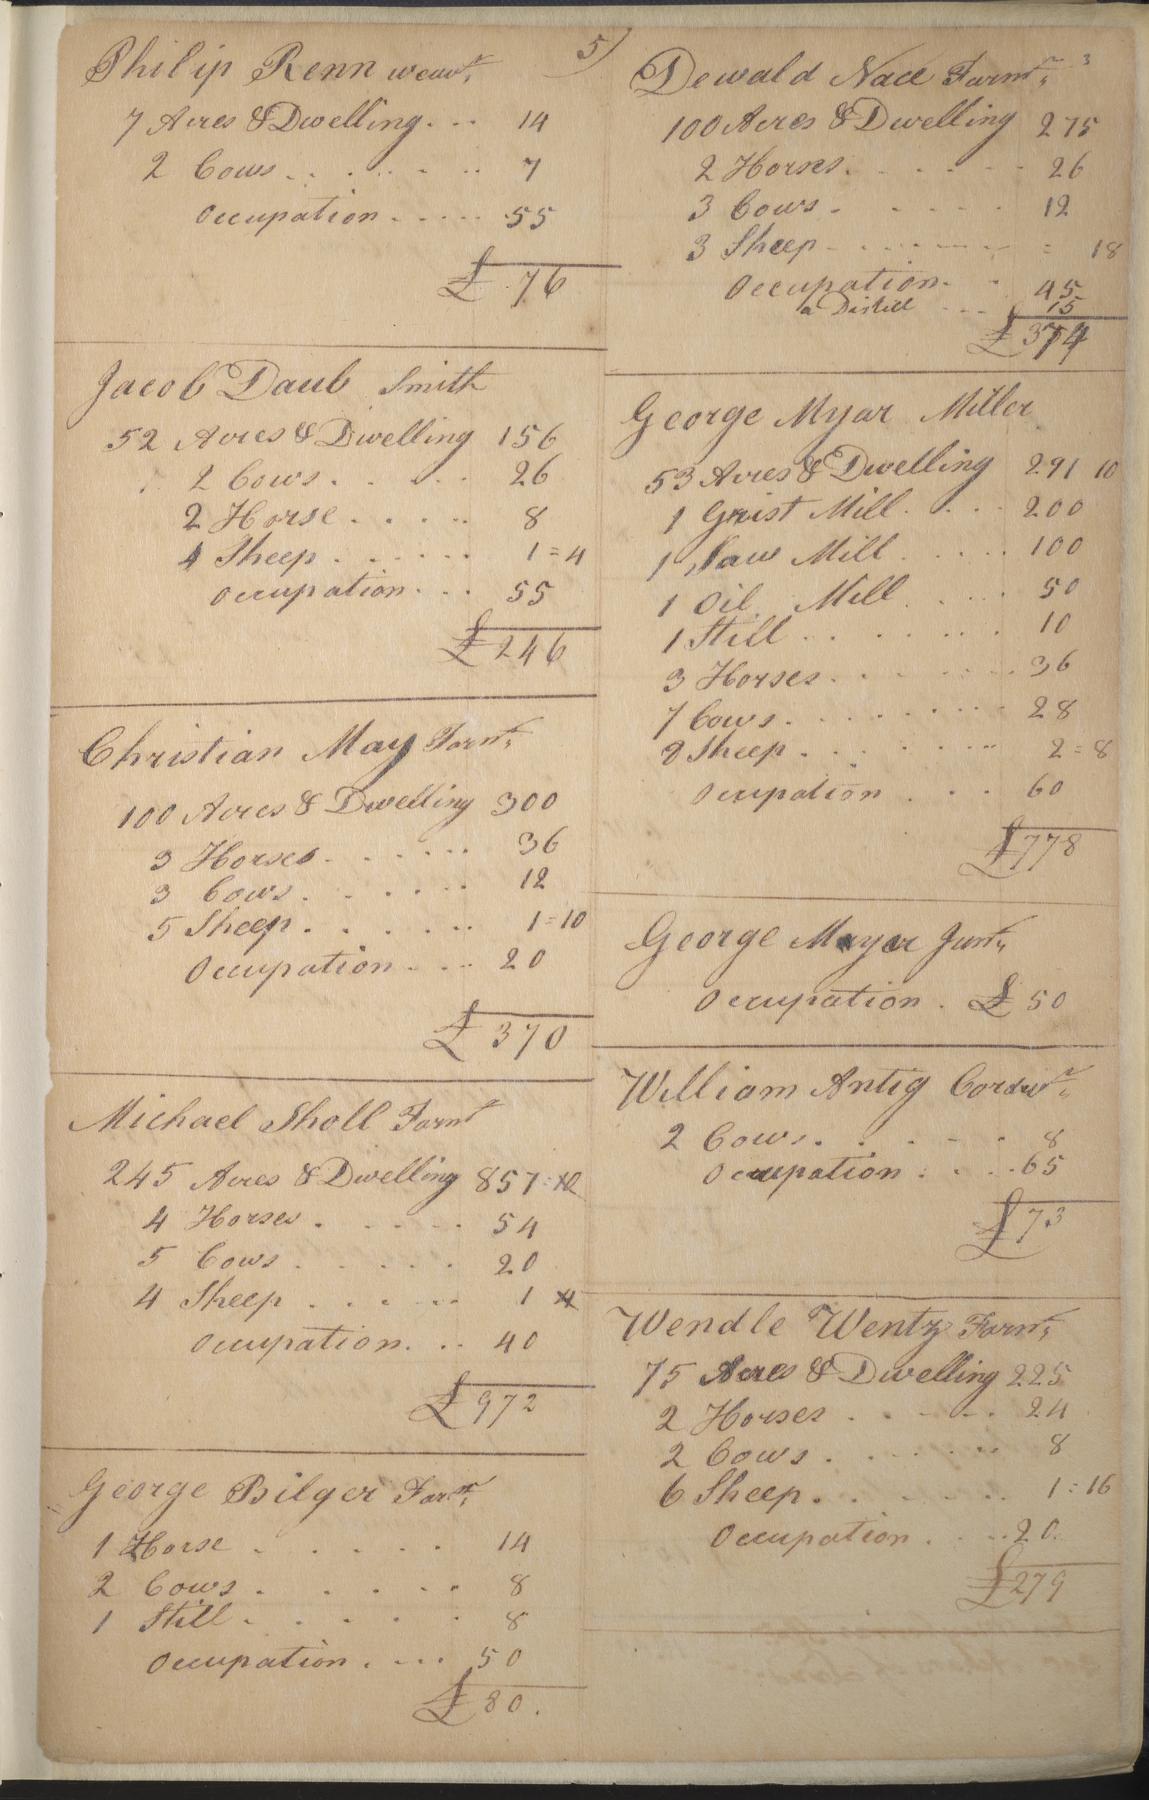 5)
Philip Renn weavr
7 Acres & Dwelling . . . 14
2 Cows . . . . . . . 7
Occupation . . . . . 55
£ 76
Jacob Daub Smith
52 Acres & Dwelling 156
2 Cows . . . . . 26
2 Horse . . . . . 8
4 Sheep . . . . . . 1=4
Occupation . . . 55
£ 246
Christian May Farmr
100 Acres & Dwelling 300
3 Horses . . . . . . 36
3 Cows . . . . . . 12
5 Sheep . . . . . . 1=10
Occupation . . . . 20
£ 370
Michael Sholl Farmr
245 Acres & Dwelling 857=10
4 Horses . . . . . 54
5 Cows . . . . . 20
4 Sheep . . . . . 1 4
Occupation . . . 40
£ 972
George Bilger Farmr
1 Horse . . . . . 14
2 Cows . . . . . 8
1 Still . . . . . . 8
Occupation . . . . 50
£ 80.
3
Dewald Nace Farmr
100 Acres & Dwelling 275
2 Horses . . . . . . 26
3 Cows . . . . . 12
3 Sheep . . . . . . = 18
Occupation . . 45
a Distill . . . 15
£ 374
George Myar Miller
53 Acres & Dwelling 291 10
1 Grist Mill . . . . 200
1 Saw Mill . . . . . 100
1 Oil Mill . . . . 50
1 Still . . . . . . 10
3 Horses . . . . . . 36
7 Cows . . . . . . . . 28
8 Sheep . . . . . . . 2=8
Occupation . . . 60
£ 778
George Mayer Junr
Occupation . £ 50
William Antig Cordwr
2 Cows . . . . . 8
Occupation . . . . 65
£ 73
Wendle Wentz Farmr
75 Acres & Dwelling 225
2 Horses . . . . . 24
2 Cows . . . . . . 8
6 Sheep . . . . . . 1=16
Occupation . . . . 20.
£ 279